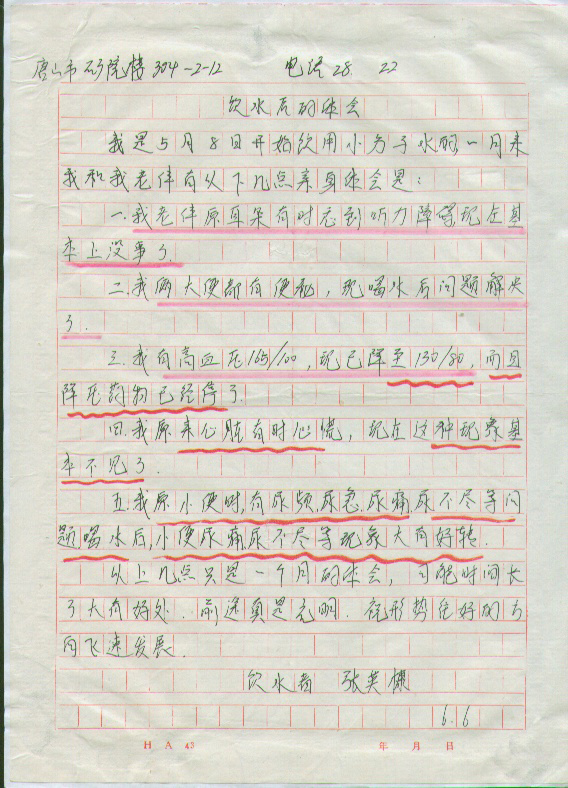 唐山市 院楼 304-2-12 电话 28 22
饮水后的体会
我是5月8日开始饮用小分子水的,一月来
我和我老伴有以下几点亲身体会是:
一.我老伴原耳朵有时感到听力障碍,现在基
本上没事了.
二.我俩大便都有便秘,现喝水后问题解决
了.
三.我有高血压165/100,现已降至130/80,而且
降压药物已经停了.
四.我原来心脏有时心慌,现在这种现象基
本不见了.
五.我原小便时,有尿频.尿急.尿痛尿不尽等问
题,喝水后,小便尿痛尿不尽等现象大有好转.
以上几点只是一个月的体会,可能时间长
了大有好处.前途真是光明.在形势往好的方
向飞速发展.
饮水者 张美
6.6
HA 43 年 月 日